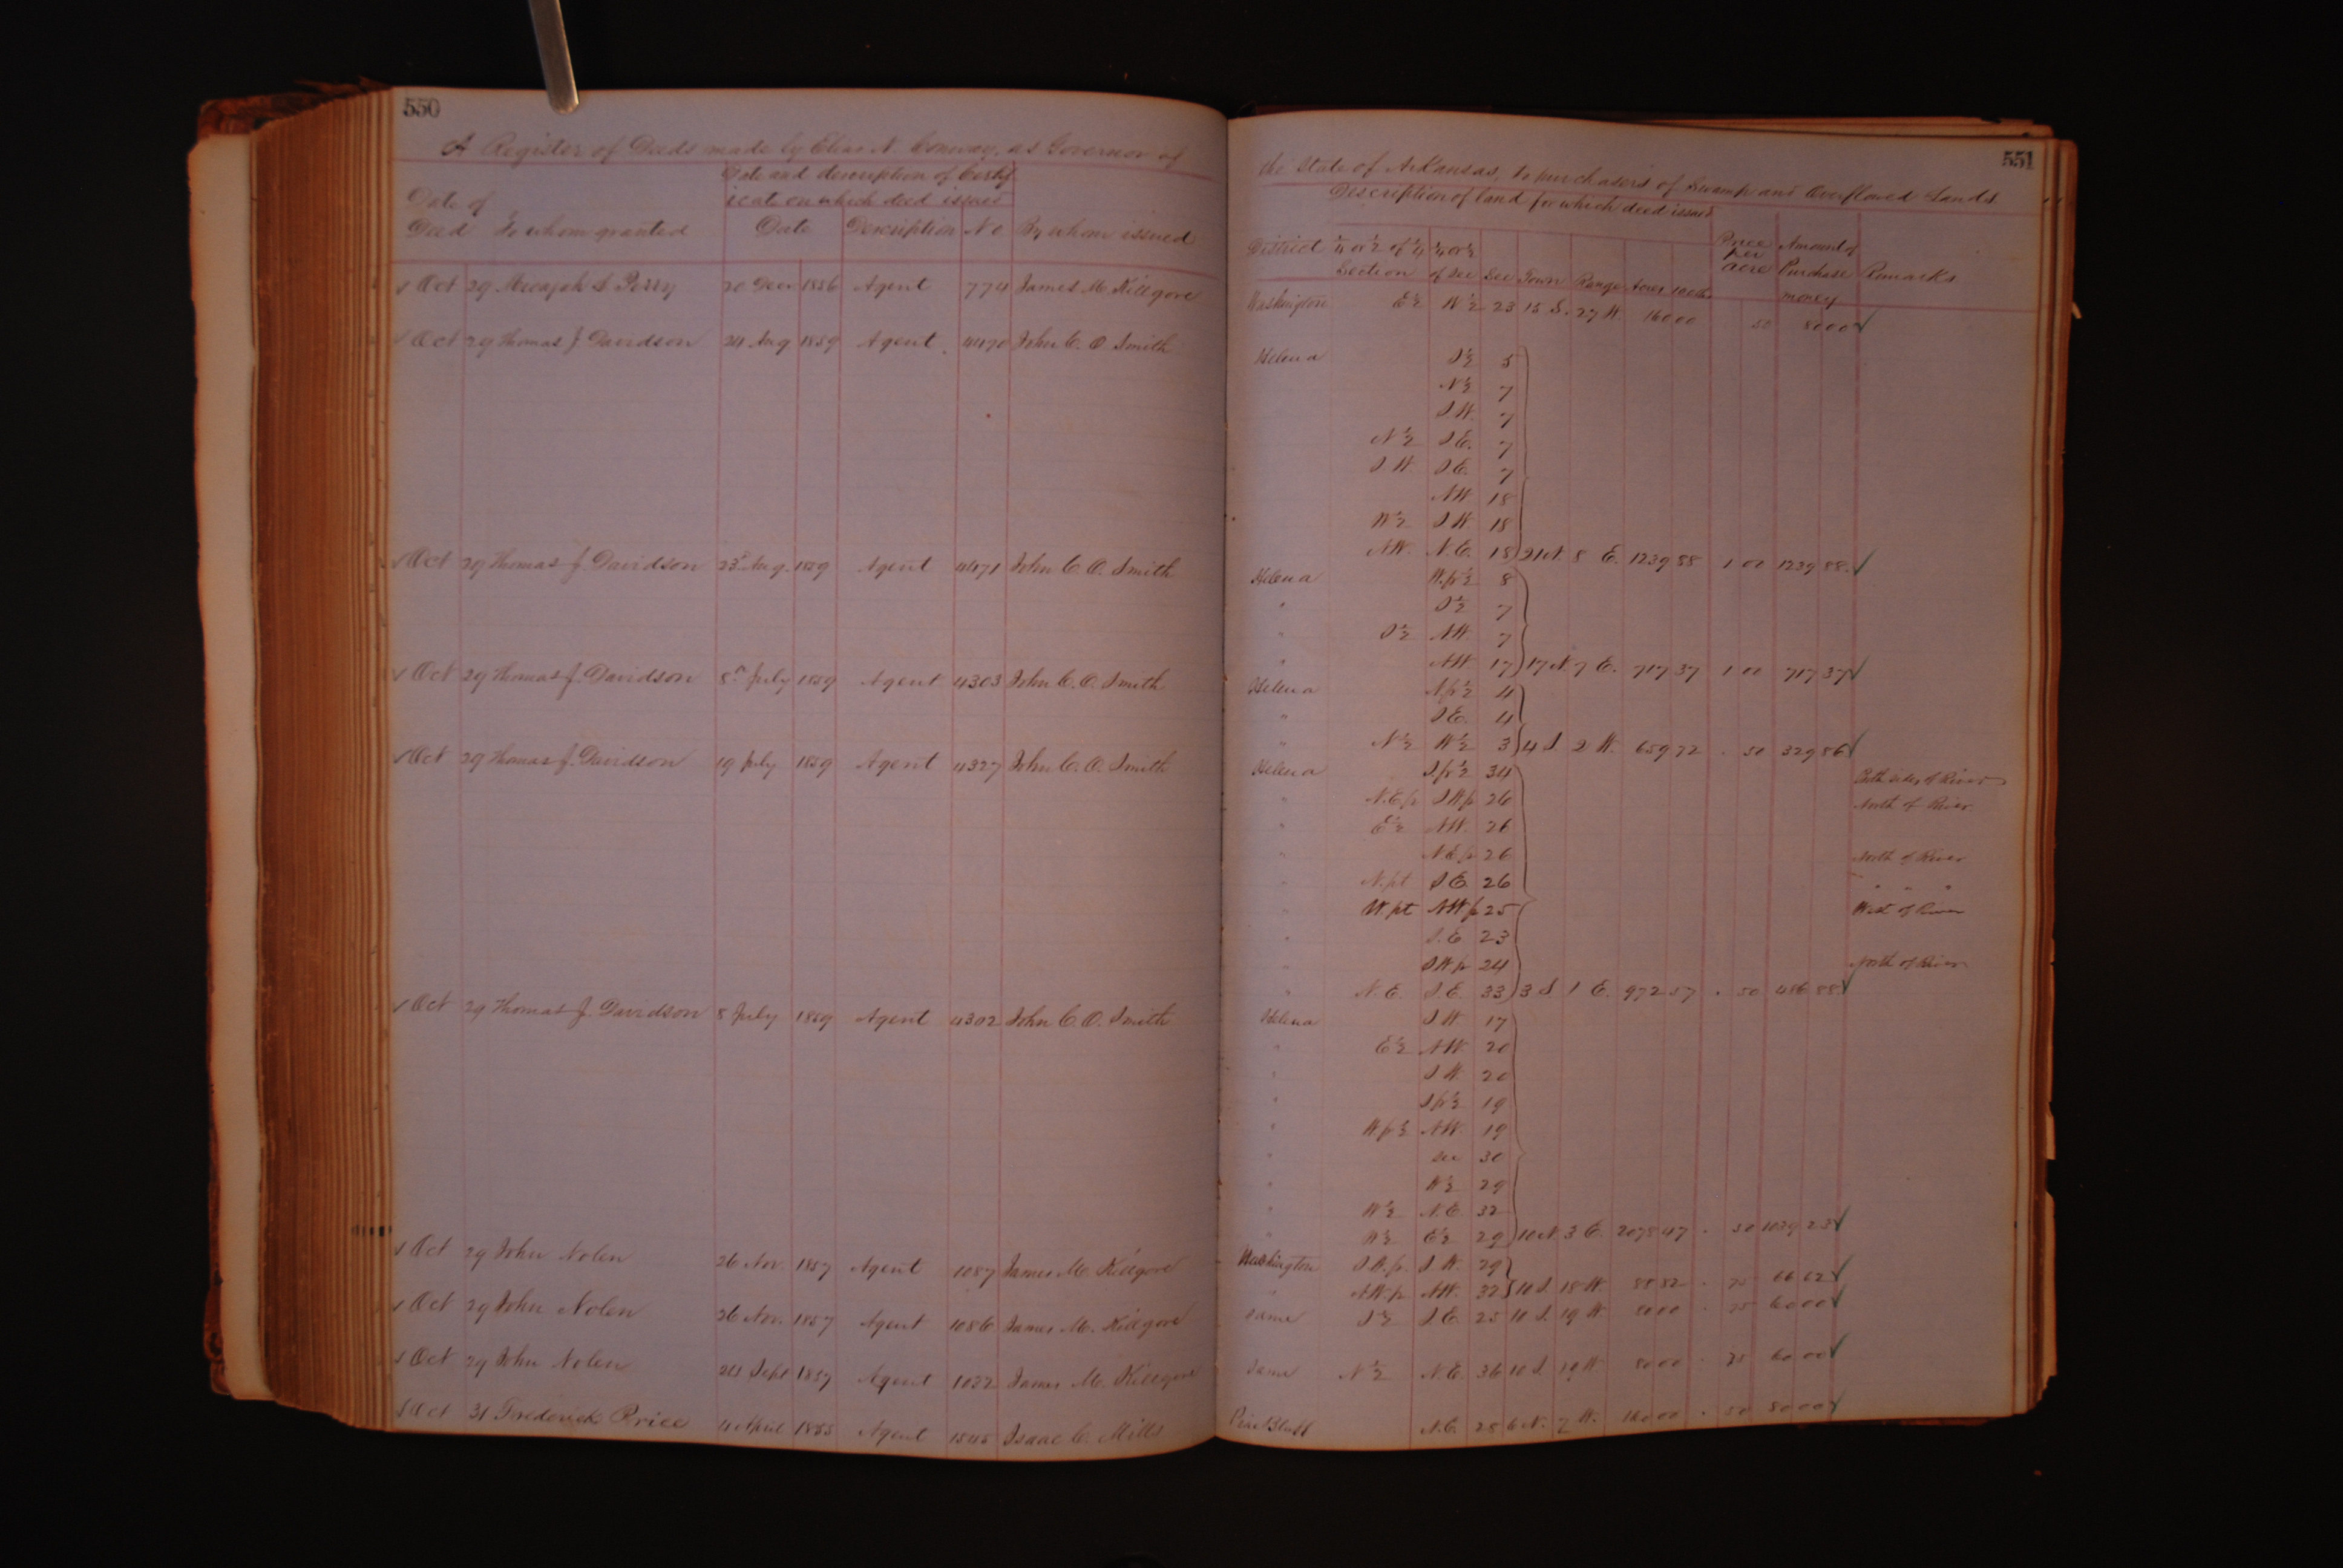 550
A Register of Deeds made by Elias N. Conway, as Governor of
Date and description of Certif
icate on which deed issues
Date of
Deed To whom granted Date Description No By whom issued
√ Oct 29 Micajah S Perry 20 Decr 1856 Agent 774 James M. Killgore
√ Oct 29 Thomas J Davidson 24 Aug 1859 Agent 4470 John C. O Smith
√ Oct 29 Thomas J. Davidson 23d Aug. 1859 Agent 4471 John C. O. Smith
√ Oct 29 Thomas J. Davidson 8th July 1859 Agent 4303 John C. O. Smith
√ Oct 29 Thomas J. Davidson 19 July 1859 Agent 4327 John C. O. Smith
√ Oct 29 Thomas J. Davidson 8 July 1859 Agent 4302 John C. O. Smith
√ Oct 29 John Nolen 26 Nov. 1857 Agent 1087 James M. Killgore
√ Oct 29 John Nolen 26 Nov. 1857 Agent 1086 James M. Killgore
√ Oct 29 John Nolen 24 Sept 1857 Agent 1032 James M. Killgore
√ Oct 31 Frederick Price 4 April 1855 Agent 1545 Isaac C. Mills
551
the State of Arkansas, to purchasers of Swamp and Overflowed Lands
Description of land for which deed issues
District ¼ or ½ of ¼ Section ¼ or ½ of Sec Sec Town Range Acres 100ths Price per acre Amount of Purchase money Remarks
Washington E½ W½ 23 15 S. 27 W. 160 00 50 80 00 √
Helena S½ 5
N½ 7
S.W. 7
N½ S.E. 7
S.W. S.E. 7
NW 18
W½ S.W. 18
NW. N.E. 18 21 N. 8 E. 1239 88 1 00 1239 88 √
Helena W.fr½ 8
" S½ 7
" S½ NW. 7
" NW 17 17 N. 7 E. 717 37 1 00 717 37 √
Helena N.fr½ 4
" S.E. 4
" N½ W½ 3 4 S. 2 W. 659 72 . 50 329 86 √
Helena S.fr½ 34 Both sides of River
" N.E.fr S.W.fr 26 North of River
" E½ NW. 26
" N.E.fr 26 North of River
" N.pt S.E. 26 " " "
" W.pt NW.fr 25 West of River
" S.E. 23
" S.W.fr 24 North of River
" N.E. S.E. 33 3 S. 1 E. 972 57 . 50 486 88 √
Helena S.W 17
" E½ NW. 20
" S.W. 20
" S.fr½ 19
" W.fr½ NW. 19
" sec 30
" W½ 29
" W½ N.E. 32
" W½ E½ 29 10 N. 3 E. 2078 47 . 50 1039 23 √
Washington S.W.fr. S.W. 29
" NW.fr NW. 32 10 S. 18 W. 88 82 . 75 66 62 √
Same S½ S.E. 25 10 S. 19 W. 80 00 . 75 60 00 √
Same N½ N.E. 36 10 S. 19 W. 80 00 . 75 60 00 √
Pine Bluff N.E. 28 6 N. 7 W. 160 00 . 50 80 00 √